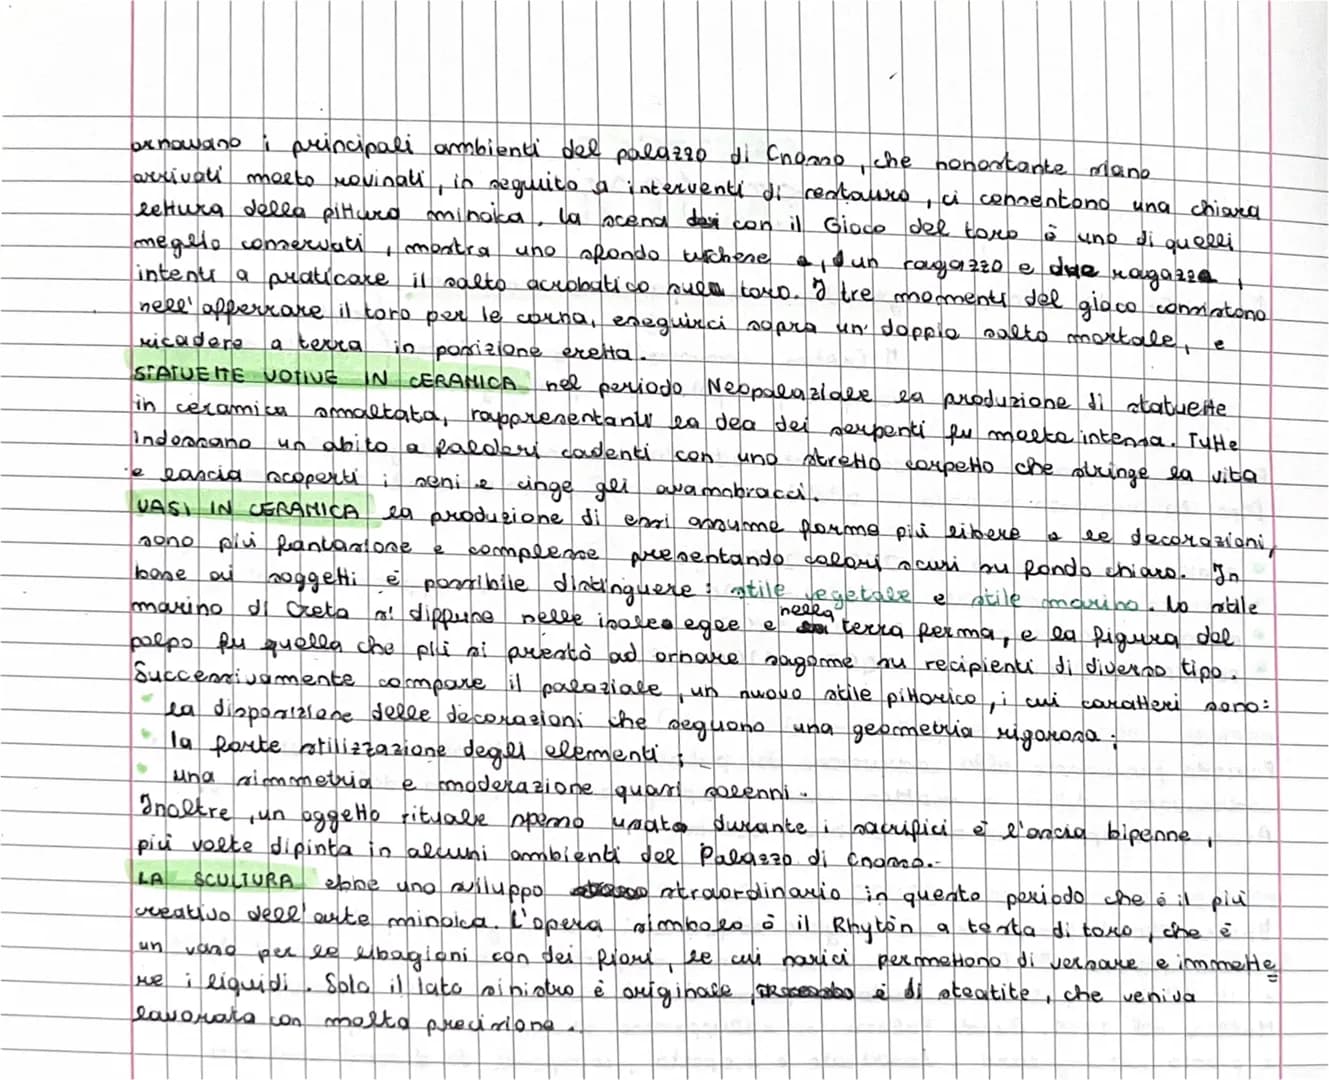 ornavano i principali ambienti del palazzo di Cnosso, che nonostante siano
arrivati molto rovinati, in seguito a interventi di restauro, ci consentono una chiara
lettura della pittura minoica. La scena con il Gioco del toro è uno di quelli
meglio conservati, mostra uno sfondo turchese, un ragazzo e due ragazze,
intenti a praticare il salto acrobatico sul toro. I tre momenti del gioco consistono
nell'afferrare il toro per le corna, eseguirci sopra un doppio salto mortale, e
ricadere a terra in posizione eretta.
STATUETTE VOTIVE IN CERAMICA nel periodo Neopalaziale la produzione di statuette
in ceramica smaltata, rappresentanti la dea dei serpenti fu molto intensa. Tutte
indossano un abito a falderi cadenti con uno stretto corpetto che stringe la vita
e lascia scoperti i seni e cinge gli avambracci.
VASI IN CERAMICA la produzione di essi assume forme più libere e le decorazioni,
sono più fantasione e complesse presentando colori scuri su fondo chiaro. In
base ai soggetti è possibile distinguere: stile vegetale e stile marino. Lo stile
marino di Creta si diffuse nelle isole egee e nella terra ferma, e la figura del
polpo fu quella che più si prestò ad ornare sagome su recipienti di diverso tipo.
Successivamente compare il palaziale, un nuovo stile pittorico, i cui caratteri sono:
• la disposizione delle decorazioni che seguono una geometria rigorosa;
• la forte stilizzazione degli elementi;
• una simmetria e moderazione quasi solenni.
Inoltre, un oggetto rituale spesso usato durante i sacrifici è l'ascia bipenne,
più volte dipinta in alcuni ambienti del Palazzo di Cnosso.
LA SCULTURA ebbe uno sviluppo straordinario in questo periodo che è il più
creativo dell'arte minoica. L'opera simbolo è il Rhytòn a testa di toro, che è
un vaso per le libagioni con dei fiori, le cui narici permettono di versare e immette
re i liquidi. Solo il lato sinistro è originale è di steatite, che veniva
lavorata con molta precisione.